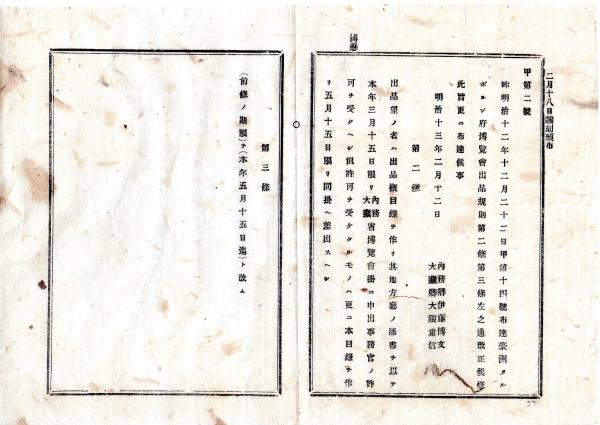 二月十八日飜刻頒布
博覽
甲第二號
昨明治十二年十二月二十二日甲第十四號布達豪洲メル
ボルン府博覽會出品規則第二條第三條左之通改正候條
此旨更ニ布達候事
明治十三年二月十二日
內務卿伊藤博文
大藏卿大隈重信
第二條
出品望ノ者ハ出品概目錄ヲ作リ其地方廳ノ添書ヲ以テ
本年三月十五日限リ內務大藏省博覽會掛ニ申出事務官ノ許
可ヲ受クヘシ但許可ヲ受ケタルモノハ更ニ本目錄ヲ作
リ五月十五日限リ同掛ヘ差出スヘシ
第三條
(前條ノ期限)ヲ(本年五月十五日迄)ト改ム